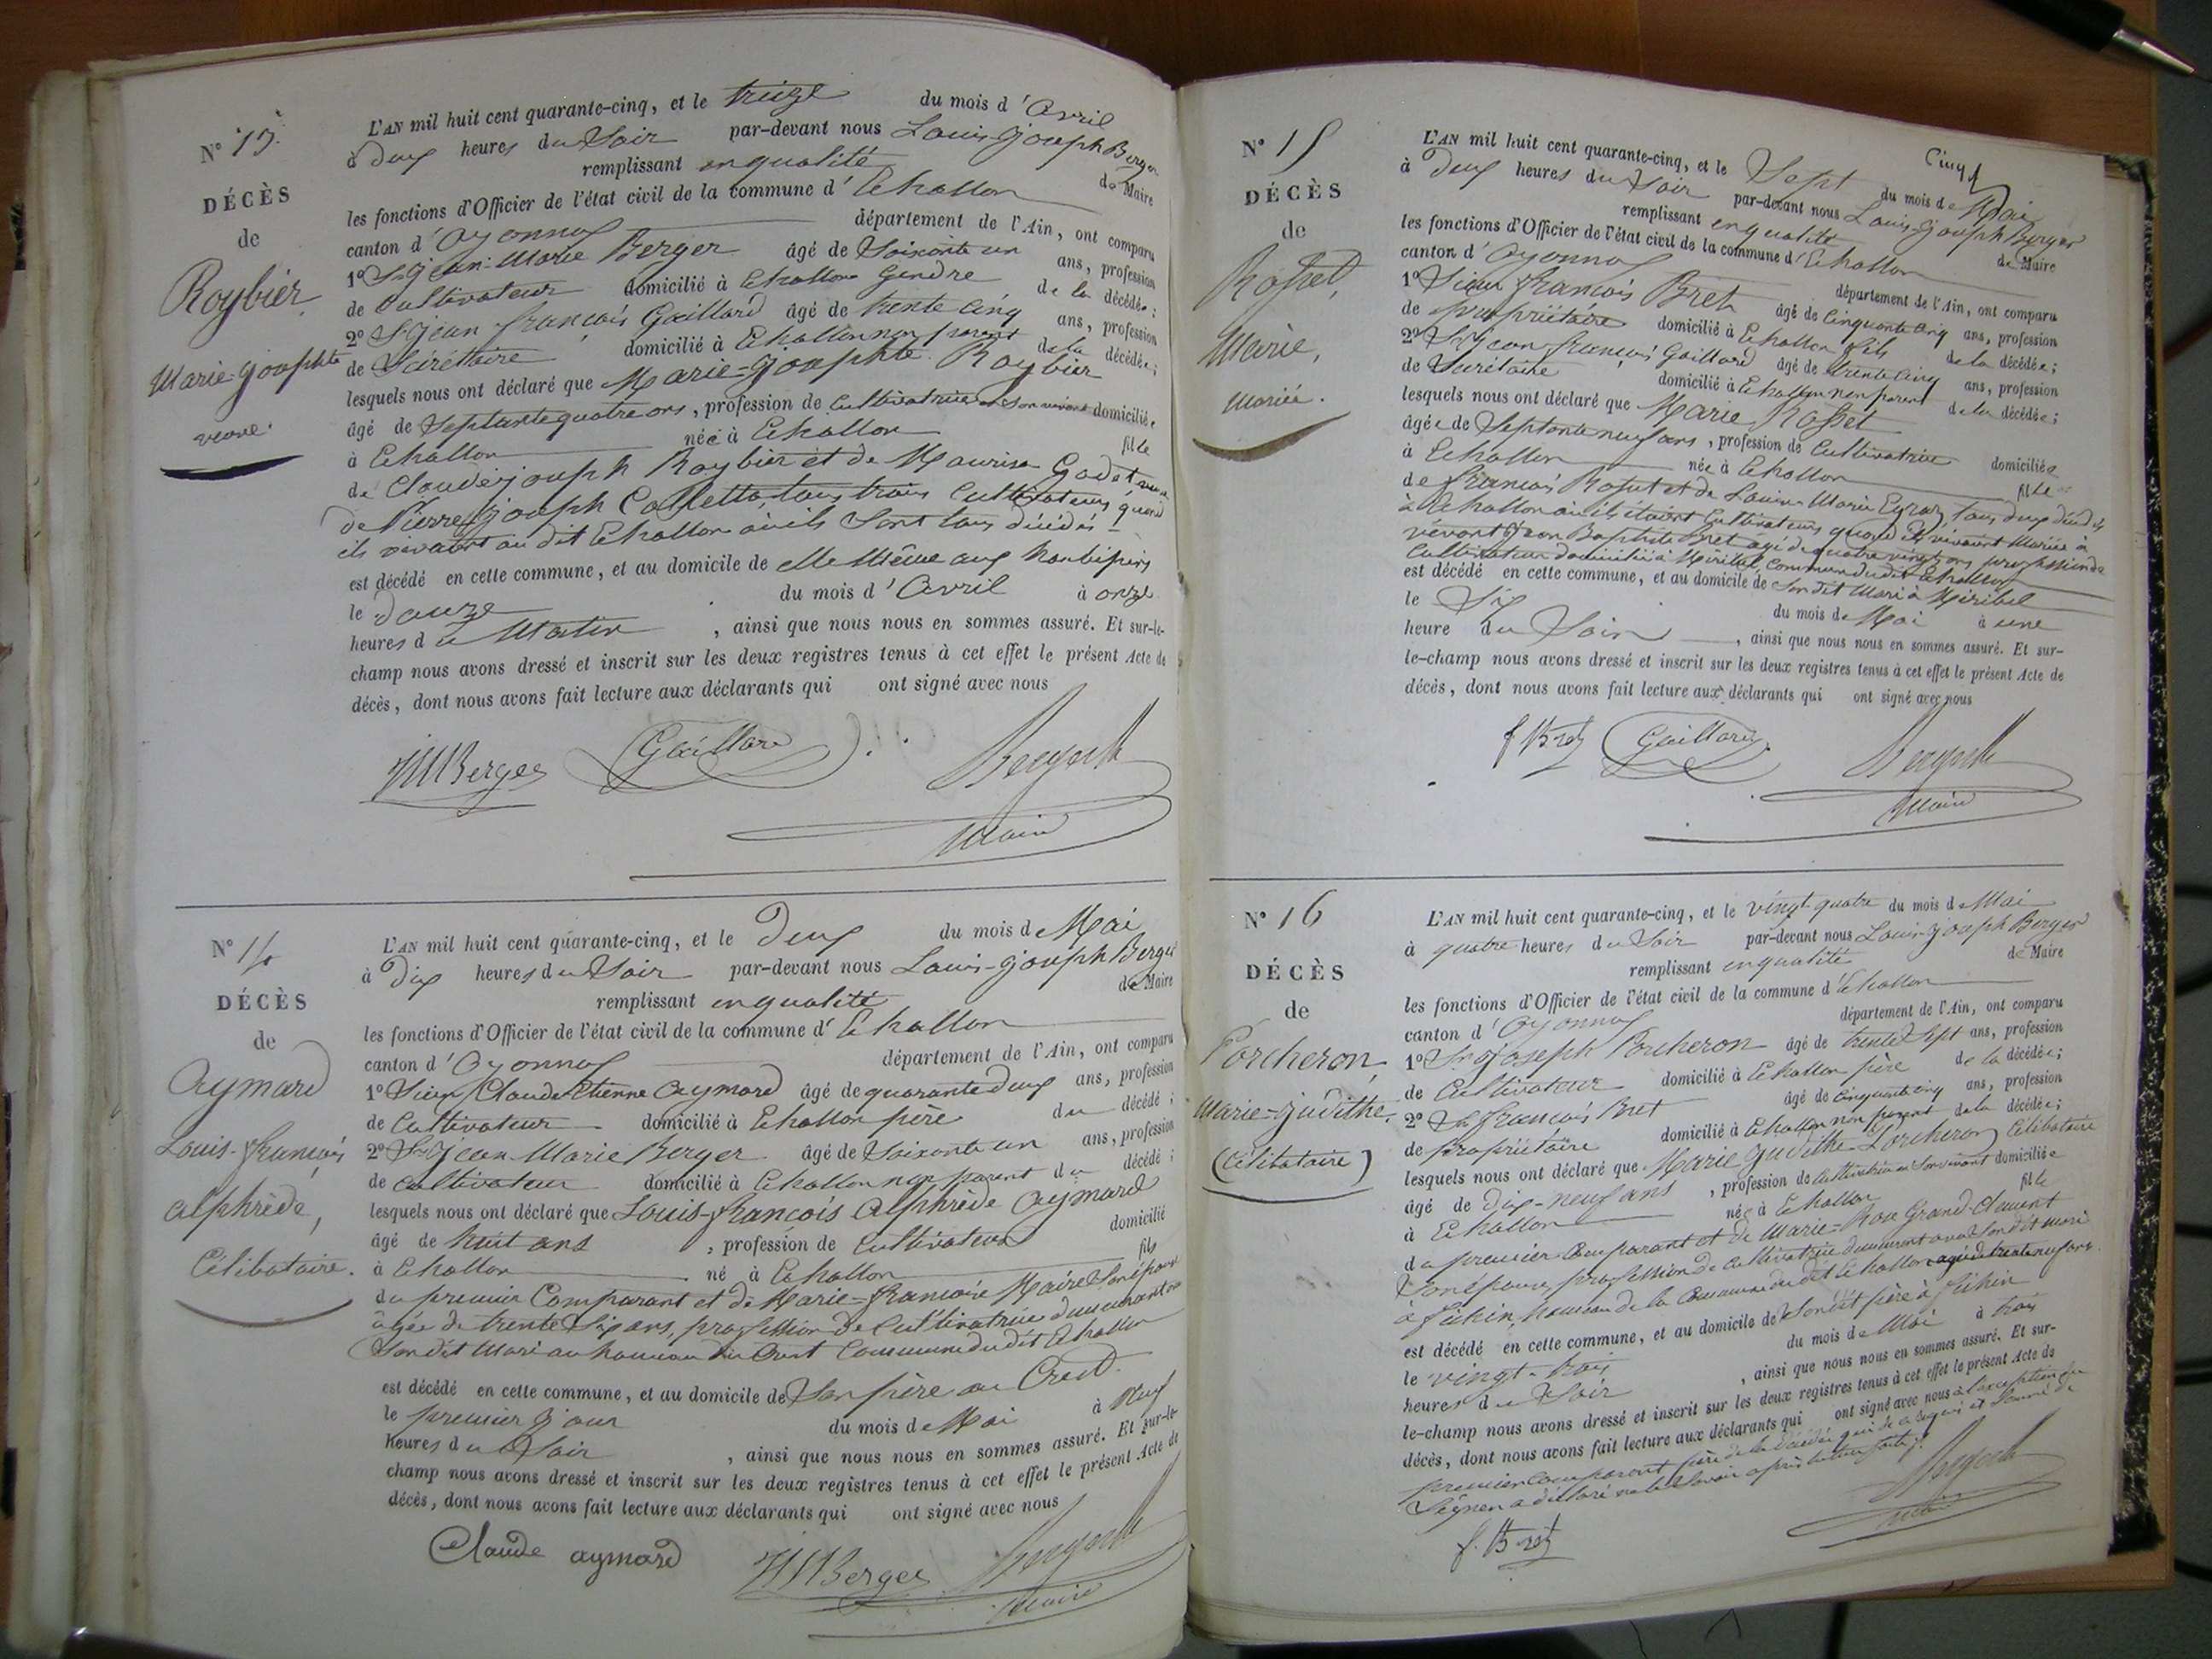 N° 13.
DÉCÈS
de
Roybier,
Marie-josephte
veuve.
L'AN mil huit cent quarante-cinq, et le treize du mois d'Avril
à deux heures du Soir par-devant nous Louis-joseph Berger
remplissant en qualité de Maire
les fonctions d'Officier de l'état civil de la commune d'Echallon
canton d'Oyonnax département de l'Ain, ont comparu
1° Sr jean-Marie Berger âgé de Soixante un ans, profession
de Cultivateur domicilié à Echallon Gendre de la décédée;
2° Sr jean-françois Gaillard âgé de trente cinq ans, profession
de Sécrétaire domicilié à Echallon non parent de la décédée;
lesquels nous ont déclaré que Marie-josephte Roybier
âgé de Septante quatre ans, profession de Cultivatrice en son vivant domiciliée
à Echallon née à Echallon fille
de Claude joseph Roybier et de Maurise Godet veuve
de Pierre joseph Colletta, tous trois Cultivateurs quand
ils vivaient au dit Echallon où ils Sont tous décédés
est décédé en cette commune, et au domicile de elle Même aux
le douze du mois d'Avril à onze
heures du Matin, ainsi que nous nous en sommes assuré. Et sur-le-
champ nous avons dressé et inscrit sur les deux registres tenus à cet effet le présent Acte de
décès, dont nous avons fait lecture aux déclarants qui ont signé avec nous
JM Berger Gaillard Berger
Maire
N° 14
DÉCÈS
de
Aymard
Louis-françois
alphrède,
Célibataire.
L'AN mil huit cent quarante-cinq, et le Deux du mois de Mai
à Dix heures du Soir par-devant nous Louis-joseph Berger
remplissant en qualité de Maire
les fonctions d'Officier de l'état civil de la commune d'Echallon
canton d'Oyonnax département de l'Ain, ont comparu
1° Sieur Claude Etienne Aymard âgé de quarante deux ans, profession
de Cultivateur domicilié à Echallon père du décédé;
2° Sr jean-Marie Berger âgé de Soixante un ans, profession
de Cultivateur domicilié à Echallon non parent du décédé;
lesquels nous ont déclaré que Louis-françois Alphrède Aymard
âgé de huit ans, profession de Cultivateur domicilié
à Echallon né à Echallon fils
du premier Comparant et de Marie-françoise Maire Son épouse
âgée de trente Six ans, profession de Cultivatrice demeurant avec
Son dit Mari au hameau du Crest Commune du dit Echallon
est décédé en cette commune, et au domicile de Son père au Crest.
le premier jour du mois de Mai à Neuf
heures du Soir, ainsi que nous nous en sommes assuré. Et sur-le-
champ nous avons dressé et inscrit sur les deux registres tenus à cet effet le présent Acte de
décès, dont nous avons fait lecture aux déclarants qui ont signé avec nous
Claude aymard JM Berger Berger
Maire
N° 15
DÉCÈS
de
Rosset,
Marie,
mariée.
L'AN mil huit cent quarante-cinq, et le Sept du mois de Mai
à Deux heures du Soir par-devant nous Louis-joseph Berger
remplissant en qualité de Maire
les fonctions d'Officier de l'état civil de la commune d'Echallon
canton d'Oyonnax département de l'Ain, ont comparu
1° Sieur François Bret âgé de Cinquante Cinq ans, profession
de propriétaire domicilié à Echallon fils de la décédée;
2° Sr jean-françois Gaillard âgé de trente Cinq ans, profession
de Secrétaire domicilié à Echallon non parent de la décédée;
lesquels nous ont déclaré que Marie Rosset
âgée de Septante neuf ans, profession de Cultivatrice domiciliée
à Echallon née à Echallon fille
de François Rosset et de Louise Marie tous deux décédés
à Echallon où ils étaient Cultivateurs quand ils vivaient Mariée à
vivant Jean Baptiste Bret âgé de quatre vingt ans profession de
Cultivateur domicilié à Méribel, Commune du dit Echallon
est décédé en cette commune, et au domicile de Son dit Mari à Méribel
le Six du mois de Mai à une
heure du Soir, ainsi que nous nous en sommes assuré. Et sur-
le-champ nous avons dressé et inscrit sur les deux registres tenus à cet effet le présent Acte de
décès, dont nous avons fait lecture aux déclarants qui ont signé avec nous
f Bret Gaillard Berger
Maire
N° 16
DÉCÈS
de
Porcheron,
Marie-judithe.
(Célibataire)
L'AN mil huit cent quarante-cinq, et le vingt-quatre du mois de Mai
à quatre heures du Soir par-devant nous Louis-joseph Berger
remplissant en qualité de Maire
les fonctions d'Officier de l'état civil de la commune d'Echallon
canton d'Oyonnax département de l'Ain, ont comparu
1° Sr joseph Porcheron âgé de trente Sept ans, profession
de Cultivateur domicilié à Echallon père de la décédée;
2° Sr françois Bret âgé de Cinquante cinq ans, profession
de propriétaire domicilié à Echallon non parent de la décédée;
lesquels nous ont déclaré que Marie judithe Porcheron Célibataire
âgé de dix-neuf ans, profession de Cultivatrice en Son vivant domiciliée
à Echallon née à Echallon fille
du premier Comparant et de Marie-Rose Grand-Clement
Son épouse, profession de Cultivatrice demeurant avec Son dit mari
à hameau de la Commune du dit Echallon agée de trente neuf ans.
est décédé en cette commune, et au domicile de Son dit père à
le vingt-trois du mois de Mai à trois
heures du Soir, ainsi que nous nous en sommes assuré. Et sur-
le-champ nous avons dressé et inscrit sur les deux registres tenus à cet effet le présent Acte de
décès, dont nous avons fait lecture aux déclarants qui ont signé avec nous à l'exception du
premier Comparant père de la Décédée qui de ce requis et Sommé de
Signer a déclaré ne le Savoir après lecture faite.
f. Bret Berger
Maire